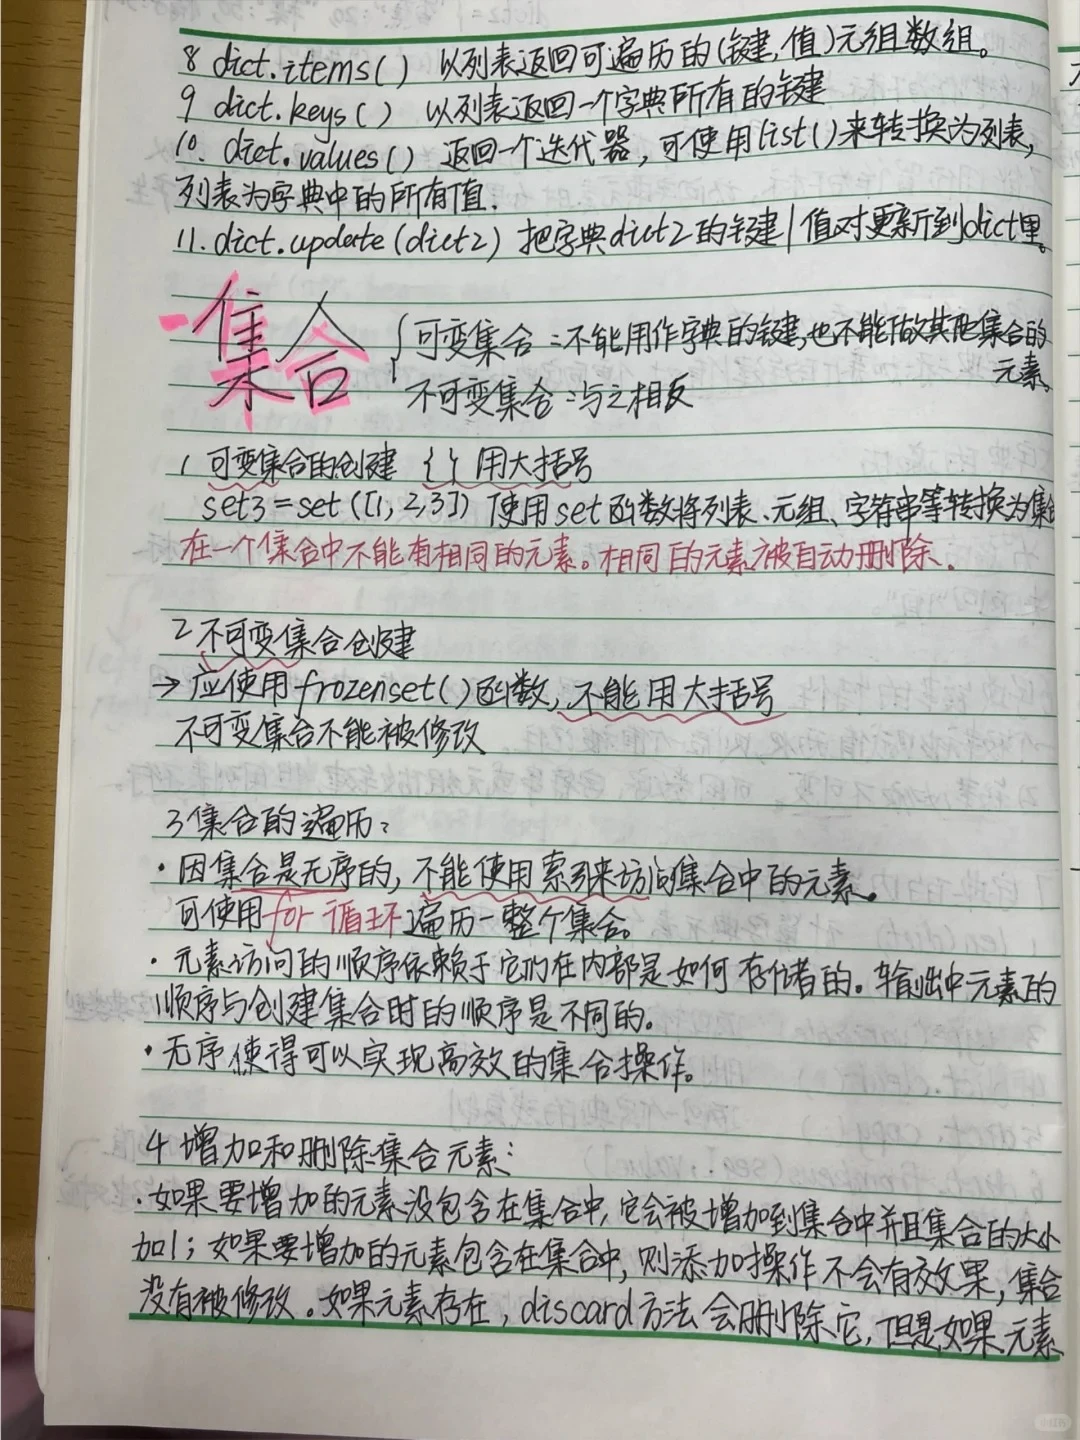 8 dict.items() 以列表返回可遍历的(键,值)元组数组。
9 dict.keys() 以列表返回一个字典所有的键
10. dict.values() 返回一个迭代器,可使用list()来转换为列表,
列表为字典中的所有值.
11. dict.update(dict2) 把字典dict2的键|值对更新到dict里。
集合
可变集合:不能用作字典的键,也不能做其他集合的
元素。
不可变集合:与之相反
1 可变集合的创建 {} 用大括号
set3=set([1,2,3]) 使用set函数将列表、元组、字符串等转换为集合
在一个集合中不能有相同的元素。相同的元素被自动删除.
2 不可变集合创建
→ 应使用frozenset()函数,不能用大括号
不可变集合不能被修改
3 集合的遍历:
· 因集合是无序的,不能使用索引来访问集合中的元素。
可使用for循环遍历一整个集合。
· 元素访问的顺序依赖于它们在内部是如何存储着的。输出中元素的
顺序与创建集合时的顺序是不同的。
· 无序使得可以实现高效的集合操作。
4 增加和删除集合元素:
· 如果要增加的元素没包含在集合中,它会被增加到集合中并且集合的大小
加1;如果要增加的元素包含在集合中,则添加操作不会有效果,集合
没有被修改。如果元素存在,discard方法会删除它,但是如果元素
小红书